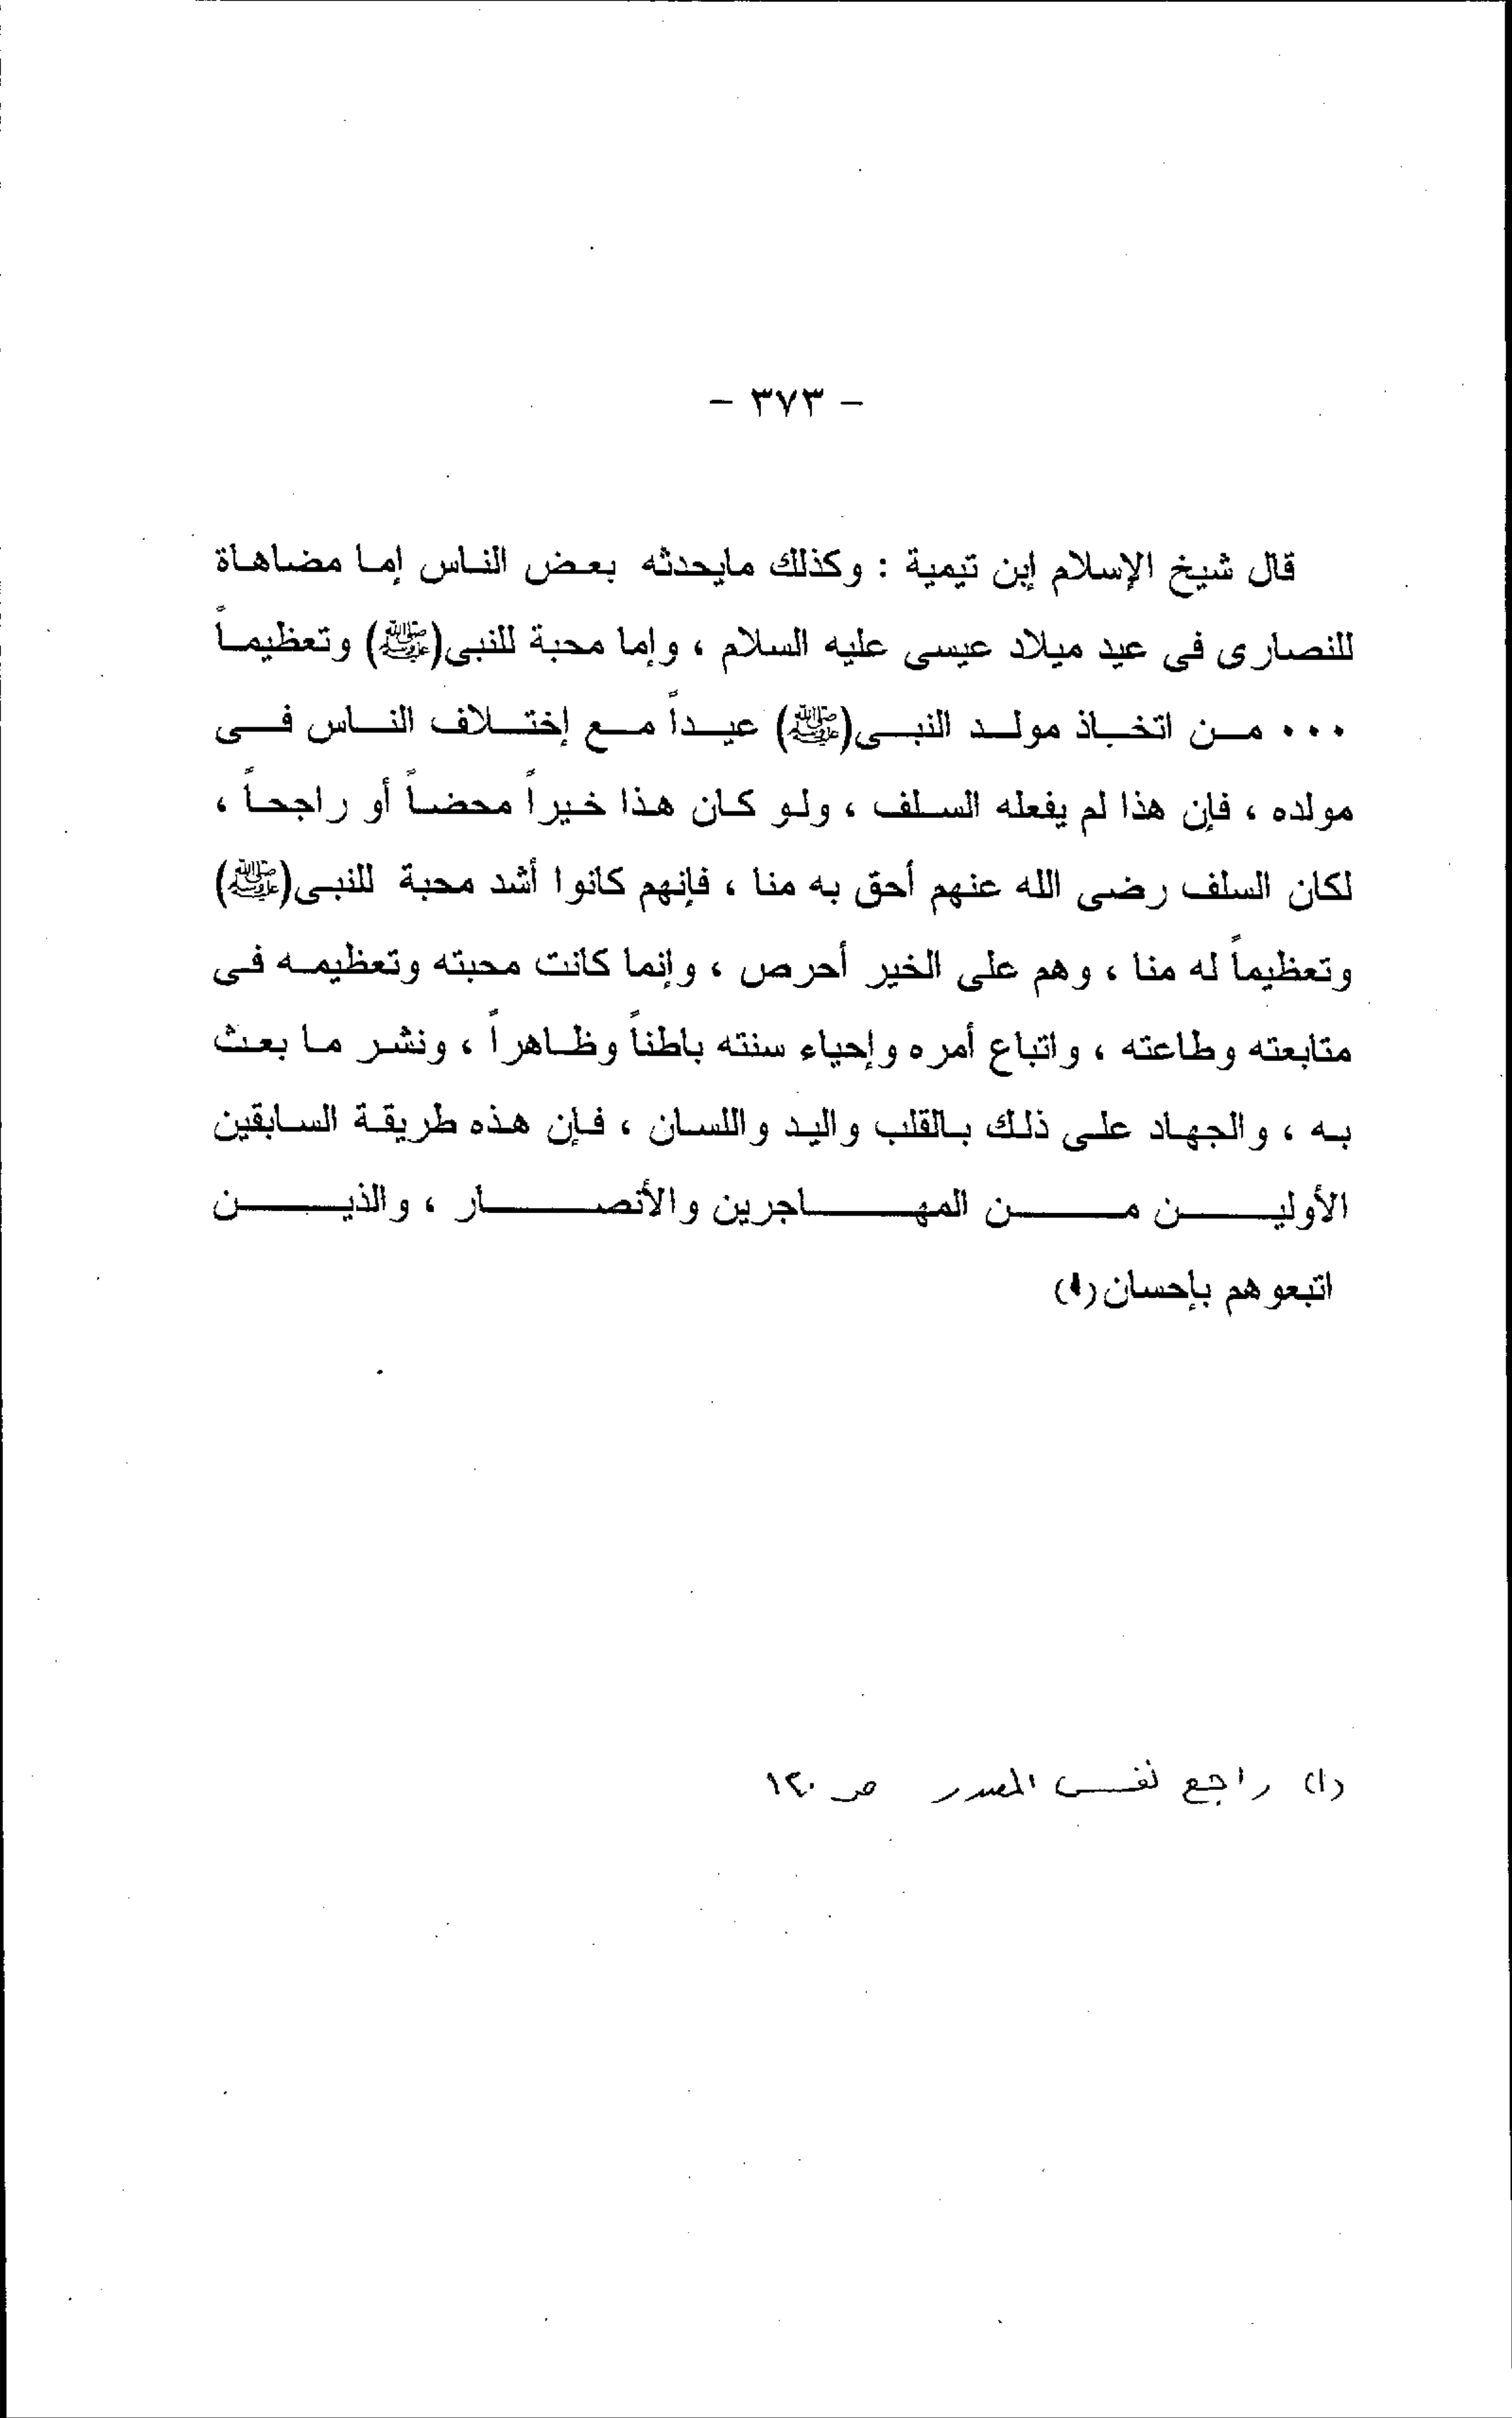 - ٣٧٣ -
قال شيخ الإسلام إبن تيمية : وكذلك مايحدثه بعض الناس إما مضاهاة
للنصارى فى عيد ميلاد عيسى عليه السلام ، وإما محبة للنبى(ﷺ) وتعظيماً
٠٠٠ من اتخاذ مولد النبى(ﷺ) عيداً مع إختلاف الناس فى
مولده ، فإن هذا لم يفعله السلف ، ولو كان هذا خيراً محضاً أو راجحاً ،
لكان السلف رضى الله عنهم أحق به منا ، فإنهم كانوا أشد محبة للنبى(ﷺ)
وتعظيماً له منا ، وهم على الخير أحرص ، وإنما كانت محبته وتعظيمه فى
متابعته وطاعته ، واتباع أمره وإحياء سنته باطناً وظاهراً ، ونشر ما بعث
به ، والجهاد على ذلك بالقلب واليد واللسان ، فإن هذه طريقة السابقين
الأولين من المهاجرين والأنصار ، والذين
اتبعوهم بإحسان(١)
(١) راجع نفس المصدر ص ١٢٠